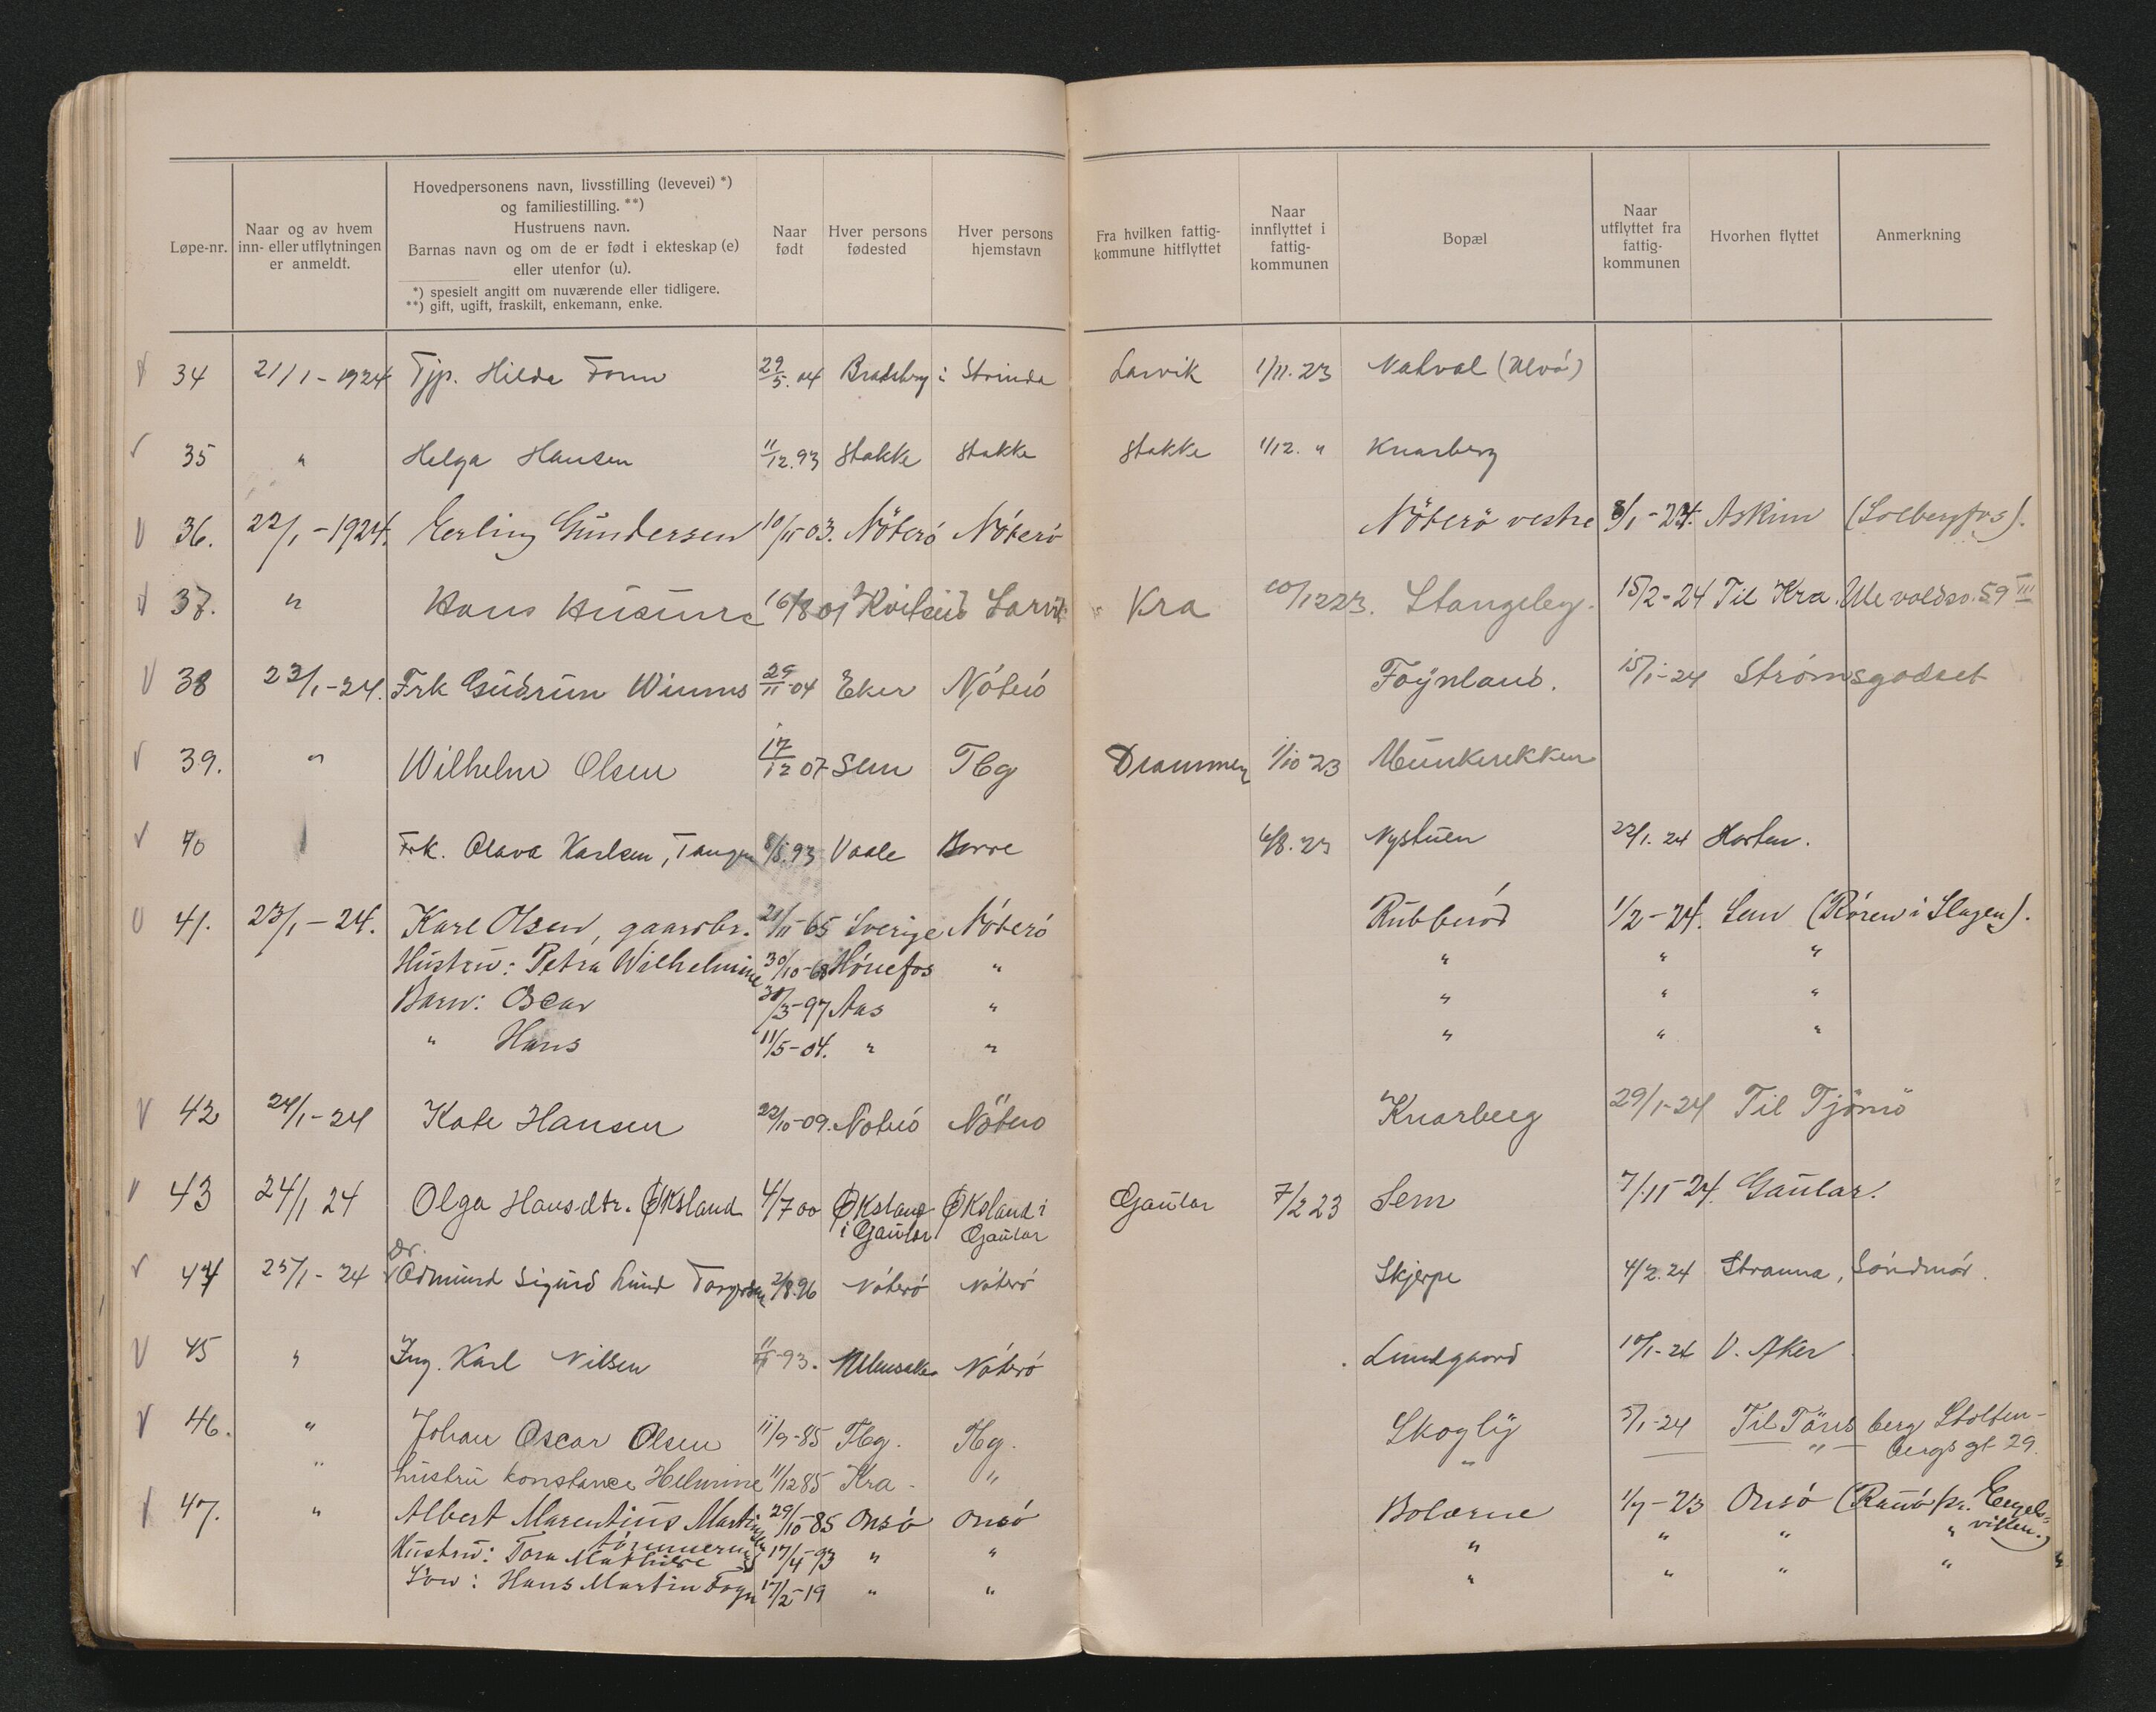 Løpe-nr.
Naar og av hvem
inn- eller utflytningen
er anmeldt.
Hovedpersonens navn, livsstilling (levevei) *)
og familiestilling. **)
Hustruens navn.
Barnas navn og om de er født i ekteskap (e)
eller utenfor (u).
*) spesielt angitt om nuværende eller tidligere.
**) gift, ugift, fraskilt, enkemann, enke.
Naar
født
Hver persons
fødested
Hver persons
hjemstavn
Fra hvilken fattig-
kommune hitflyttet
Naar
innflyttet i
fattig-
kommunen
Bopæl
Naar
utflyttet fra
fattig-
kommunen
Hvorhen flyttet
Anmerkning
34 21/1-1924 Tjp. Hilda Form 29/5.04 Bradsberg i Strinda Larvik 1/11.23 Nakval (Ulvö)
35 " Helga Hansen 11/12.93 Stokke Stokke Stokke 1/12. " Knarberg
36. 22/1-1924. Erling Gundersen 10/11-03. Nöterö Nöterö Nöterö vestre 8/1-24. Askim (Solbergfos).
37. " Hans Husum 16/8 01 Kviteseid Larvik Kra 10/12 23. Stangeby. 15/2-24 Til Kra. Ulevoldsv. 59 III
38 23/1-24. Frk Gudrun Winnes 29/11-04 Eker Nöterö Föynland. 15/1-24 Strömsgodset
39. " Wilhelm Olsen 17/12 07 Sem Tbg Drammen 1/10 23 Munkerekken
40 Frk. Olava Karlsen, Tangen 8/8.93 Vaale Borre 6/8.23 Nystuen 22/1.24 Horten.
41. 23/1-24. Karl Olsen, gaardbr. 21/11-65 Sverige Nöterö Rubberöd 1/2-24. Sem (Rören i Slagen).
Hustru: Petra Wilhelmine 30/10-68 Hönefos " " " "
Barn: Oscar 30/3-97 Aas " " " "
" Hans 11/5-04. " " " " "
42 24/1-24 Kate Hansen 22/10-09. Noterö Nöterö Knarberg 29/1-24 Til Tjömö
43 24/1 24 Olga Hansdtr. Øksland 4/7 00 Øksland Øksland i Gaular 7/2 23 Sem 7/11-24. Gaular.
i Gaular Gaular
Dr.
44 25/1-24 Edmund Sigurd Lund Torgersen 2/8.96 Nöterö Nöterö Skjerpe 4/2.24 Stranna, Söndmör.
45 " Ing. Karl Nilsen -93. Nöterö Lundgaard 10/1-24 V. Aker
46. " Johan Oscar Olsen 11/9-85 Tbg. Tbg. Skogly 5/1-24 Til Töns berg Stolten-
bergs gt 29.
" hustru konstance Helmine 11/12 85 Kra - " " "
47. " Albert Marentius Martinsen 29/10-85 Onsö Onsö Bolærne 1/7-23 Onsö (Rauö pr. Engels-
viken.)
tömmerm
Hustru: Tora Mathilde 17/4-93 " " " " " "
Sön: Hans Martin 17/2-19 " " " " " "